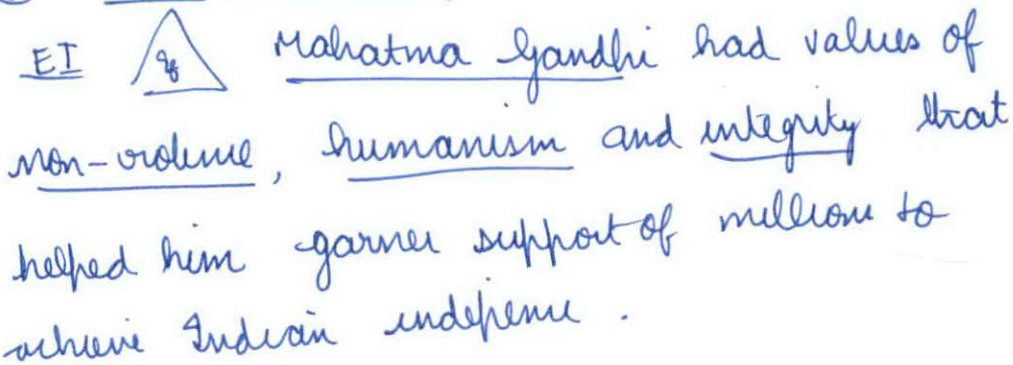 EI Mahatma Gandhi had values of
non-violence, humanism and integrity that
helped him garner support of millions to
achieve Indian indepene.